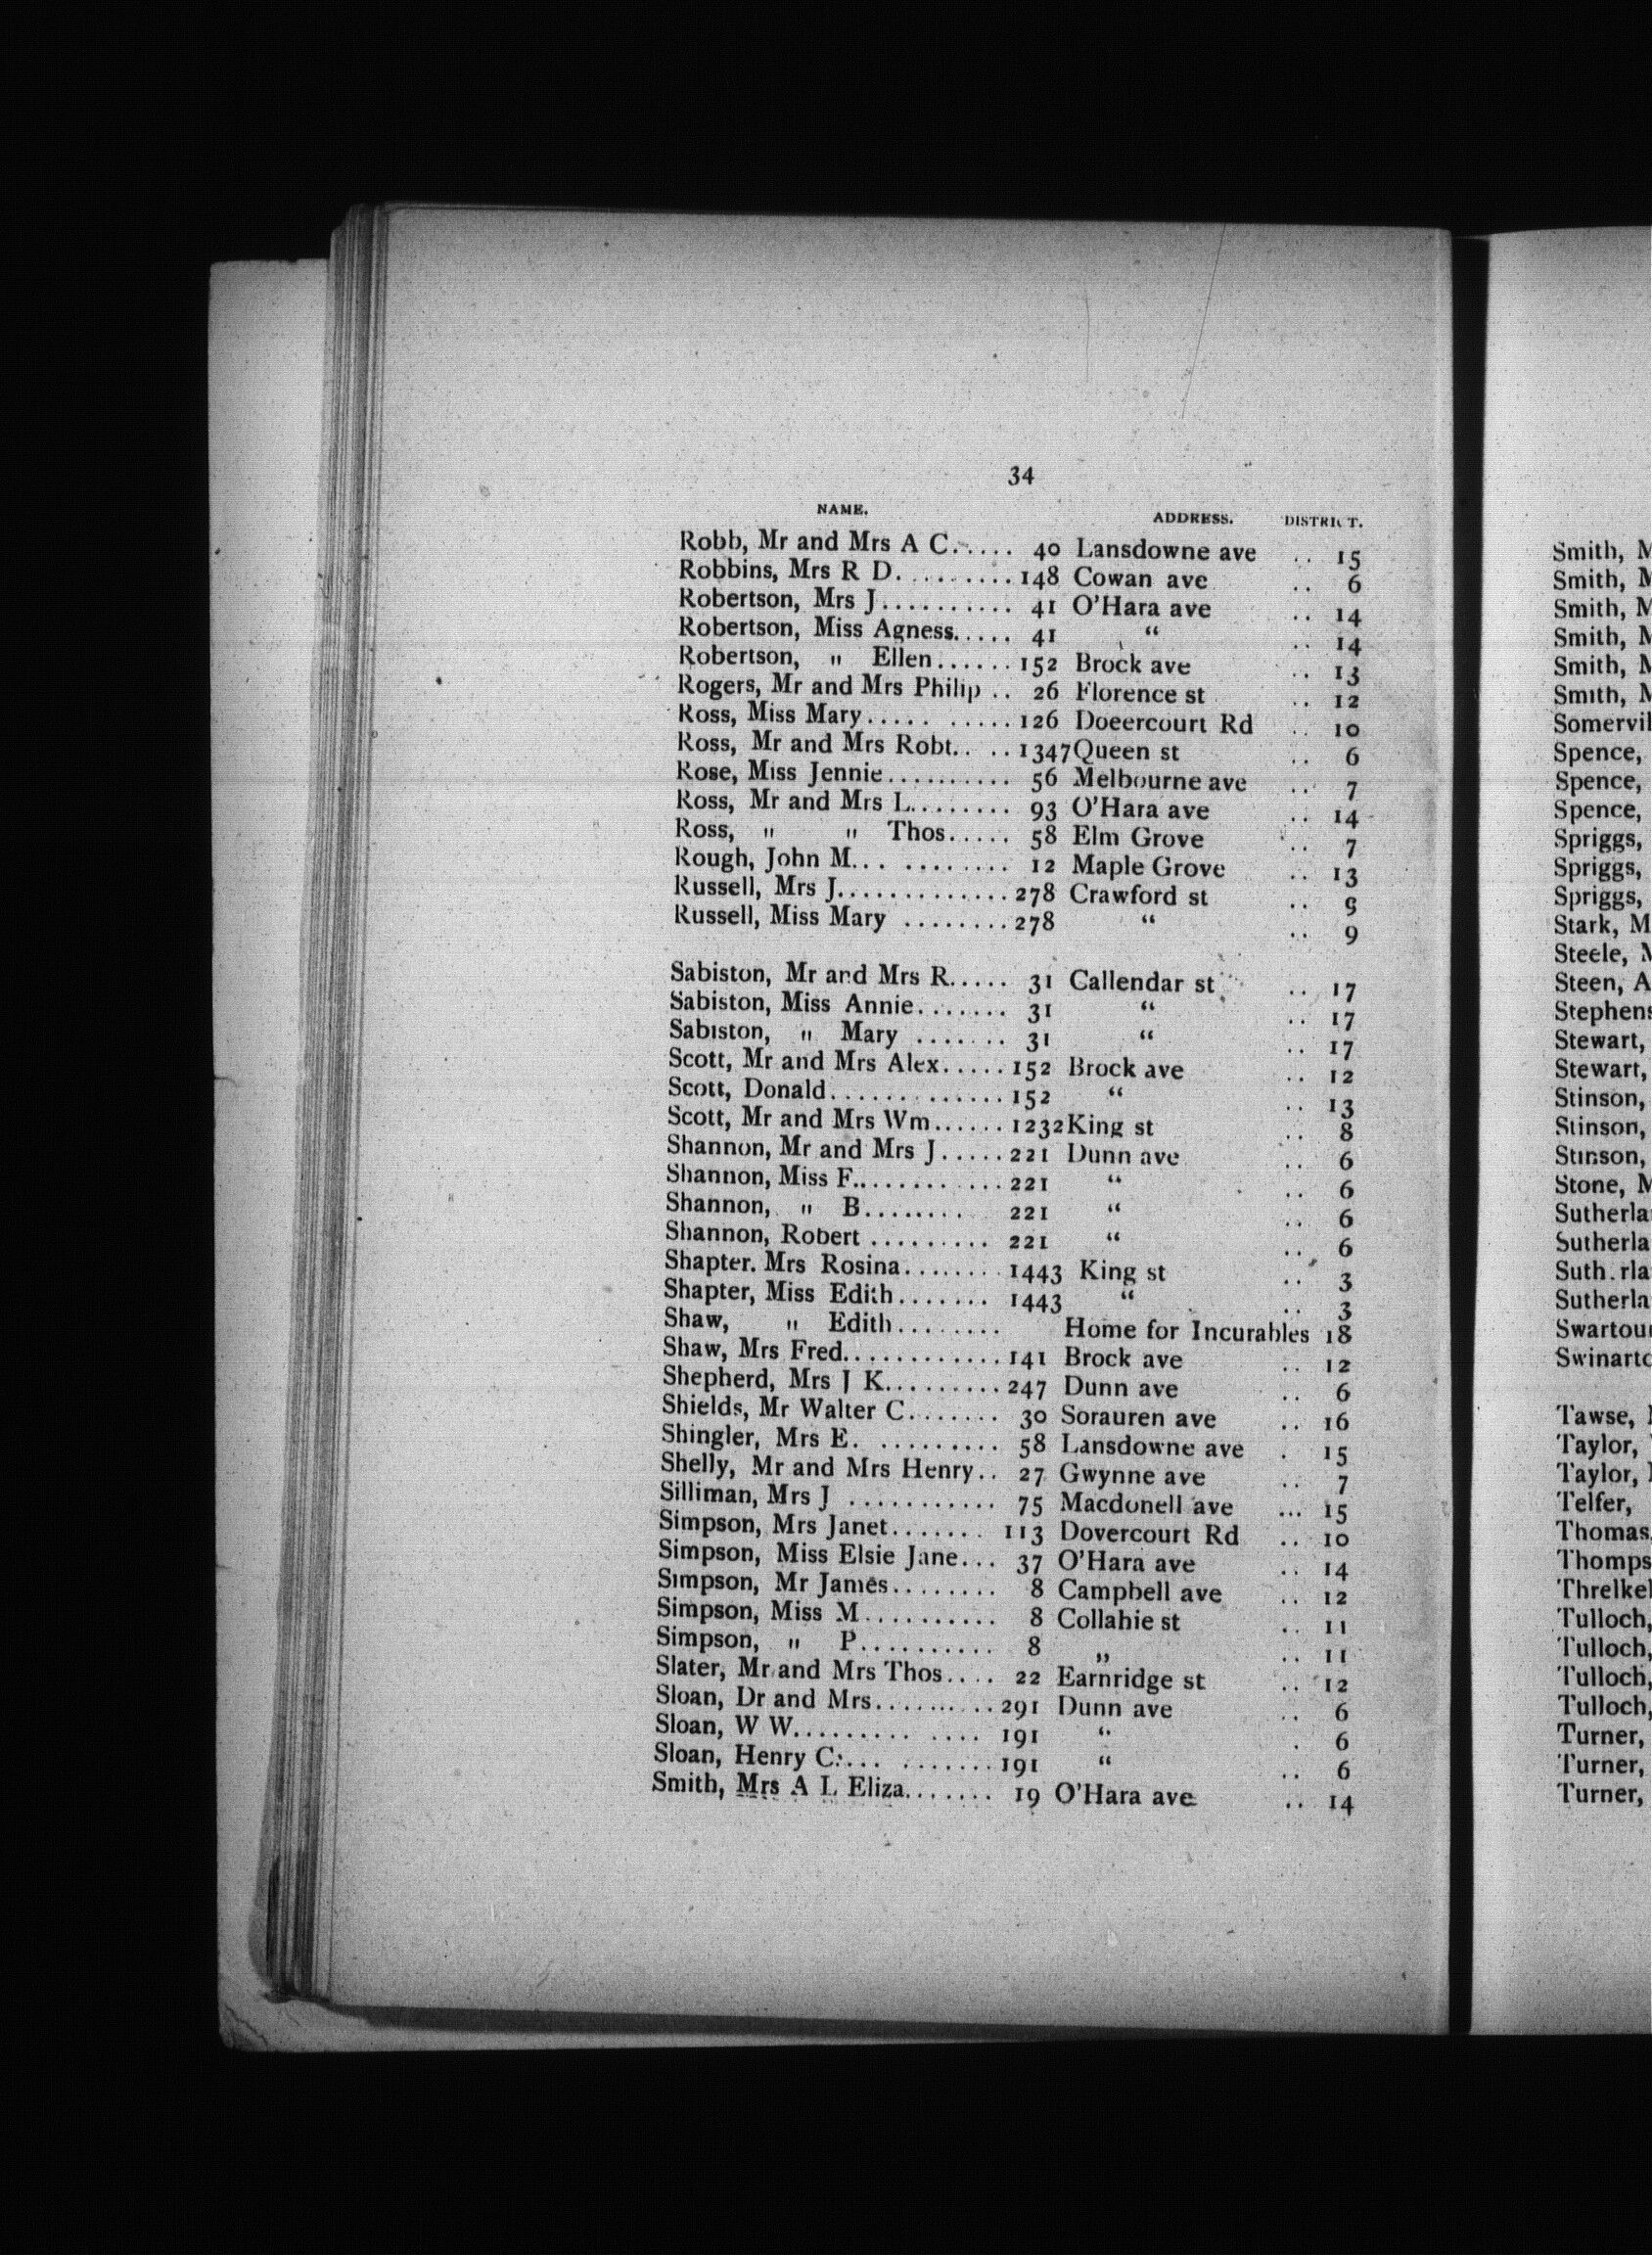 34
NAME. ADDRESS. DISTRICT.
Robb, Mr and Mrs A C...... 40 Lansdowne ave .. 15
Robbins, Mrs R D.........148 Cowan ave .. 6
Robertson, Mrs J.......... 41 O'Hara ave .. 14
Robertson, Miss Agness..... 41 " .. 14
Robertson, " Ellen......152 Brock ave .. 13
Rogers, Mr and Mrs Philip .. 26 Florence st .. 12
Ross, Miss Mary..... .....126 Doeercourt Rd .. 10
Ross, Mr and Mrs Robt.. ..1347Queen st .. 6
Rose, Miss Jennie.......... 56 Melbourne ave .. 7
Ross, Mr and Mrs L........ 93 O'Hara ave .. 14
Ross, " " Thos..... 58 Elm Grove .. 7
Rough, John M... ........ 12 Maple Grove .. 13
Russell, Mrs J.............278 Crawford st .. 9
Russell, Miss Mary ........278 " .. 9
Sabiston, Mr and Mrs R..... 31 Callendar st .. 17
Sabiston, Miss Annie....... 31 " .. 17
Sabiston, " Mary ....... 31 " .. 17
Scott, Mr and Mrs Alex.....152 Brock ave .. 12
Scott, Donald.............152 " .. 13
Scott, Mr and Mrs Wm......1232King st .. 8
Shannon, Mr and Mrs J.....221 Dunn ave .. 6
Shannon, Miss F............221 " .. 6
Shannon, " B........ 221 " .. 6
Shannon, Robert ......... 221 " .. 6
Shapter. Mrs Rosina........1443 King st .. 3
Shapter, Miss Edith....... 1443 " .. 3
Shaw, " Edith........ Home for Incurables 18
Shaw, Mrs Fred............141 Brock ave .. 12
Shepherd, Mrs J K.........247 Dunn ave .. 6
Shields, Mr Walter C....... 30 Sorauren ave .. 16
Shingler, Mrs E. ......... 58 Lansdowne ave . 15
Shelly, Mr and Mrs Henry.. 27 Gwynne ave .. 7
Silliman, Mrs J ........... 75 Macdonell ave ... 15
Simpson, Mrs Janet....... 113 Dovercourt Rd .. 10
Simpson, Miss Elsie Jane... 37 O'Hara ave .. 14
Simpson, Mr James........ 8 Campbell ave .. 12
Simpson, Miss M.......... 8 Collahie st .. 11
Simpson, " P.......... 8 „ .. 11
Slater, Mr and Mrs Thos.... 22 Earnridge st .. 12
Sloan, Dr and Mrs..........291 Dunn ave .. 6
Sloan, W W......... .... 191 " . 6
Sloan, Henry C:... .......191 " .. 6
Smith, Mrs A L Eliza....... 19 O'Hara ave .. 14
Smith, M
Smith, M
Smith, M
Smith, M
Smith, M
Smith, M
Somervil
Spence,
Spence,
Spence,
Spriggs,
Spriggs,
Spriggs,
Stark, M
Steele, M
Steen, A
Stephens
Stewart,
Stewart,
Stinson,
Stinson,
Stinson,
Stone, M
Sutherla
Sutherla
Suth.rla
Sutherla
Swartou
Swinarto
Tawse,
Taylor,
Taylor,
Telfer,
Thomas
Thomps
Threlkel
Tulloch,
Tulloch,
Tulloch,
Tulloch,
Turner,
Turner,
Turner,